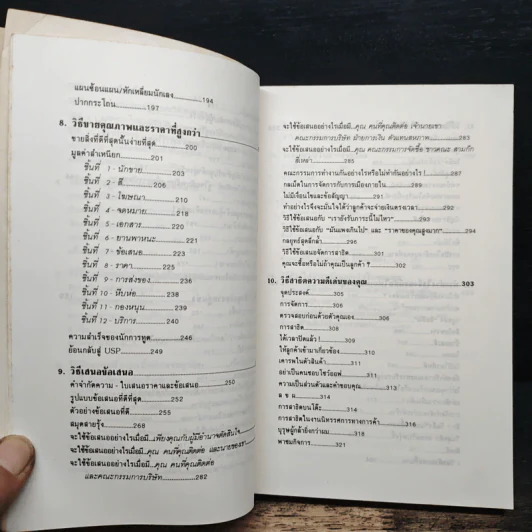 แผนซ้อนแผน/หักเหลี่ยมนักเลง..........194
ปากกระโถน..........197
8. วิธีขายคุณภาพและราคาที่สูงกว่า
ขายสิ่งที่ดีที่สุดนั้นง่ายที่สุด..........200
มูลค่าสำเหนียก..........201
ชิ้นที่ 1 - นักขาย..........203
ชิ้นที่ 2 - ดี..........206
ชิ้นที่ 3 - โฆษณา..........210
ชิ้นที่ 4 - จดหมาย..........218
ชิ้นที่ 5 - เอกสาร..........220
ชิ้นที่ 6 - ยานพาหนะ..........221
ชิ้นที่ 7 - ข้อเสนอ..........223
ชิ้นที่ 8 - ราคา..........225
ชิ้นที่ 9 - การส่งของ..........236
ชิ้นที่ 10 - หีบห่อ..........238
ชิ้นที่ 11 - กองหนุน..........239
ชิ้นที่ 12 - บริการ..........240
ความสำเร็จของนักการทูต..........246
ย้อนกลับสู่ USP..........249
9. วิธีเสนอข้อเสนอ
คำจำกัดความ - ใบเสนอราคาและข้อเสนอ..........250
รูปแบบข้อเสนอที่ดีที่สุด..........252
ตัวอย่างข้อเสนอที่ดี..........255
สมุดสายรุ้ง..........268
จะใช้ข้อเสนออย่างไรเมื่อมี...เพียงคุณกับผู้มีอำนาจตัดสินใจ
จะใช้ข้อเสนออย่างไรเมื่อมี...คุณ คนที่คุณติดต่อ และนายของเขา
จะใช้ข้อเสนออย่างไรเมื่อมี...คุณ คนที่คุณติดต่อ
และคณะกรรมการบริษัท..........282
จะใช้ข้อเสนออย่างไรเมื่อมี...คุณ คนที่คุณติดต่อ เจ้านายเขา
คณะกรรมการบริษัท ฝ่ายการเงิน ตัวแทนสหภาพ..........283
จะใช้ข้อเสนออย่างไรเมื่อมี...คุณ คณะกรรมการจัดซื้อ ชาวคณะ สามก๊ก
..........285
คณะกรรมการทำงานกันอย่างไรหรือไม่ทำกันอย่างไร !
กลเม็ดในการจัดการกับการเมืองภายใน..........290
ไม่มีเงื่อนไขและข้อสัญญา..........291
ทำอย่างไรจึงจะมั่นใจได้ว่าลูกค้าจะจ่ายเงินตรงเวลา..........292
วิธีใช้ข้อเสนอกับ "เรายังรับภาระนี้ไม่ไหว"..........293
วิธีใช้ข้อเสนอกับ "มันแพงเกินไป" และ "ราคาของคุณสูงมาก"..........294
กลยุทธ์สุดลึกล้ำ..........296
วิธีใช้ข้อเสนอจัดการสาธิต..........301
คุณจะซื้อหรือไม่ถ้าคุณเป็นลูกค้า ?..........302
10. วิธีสาธิตความดีเด่นของคุณ..........303
จุดประสงค์..........305
การจัดการ..........305
ตรวจสอบก่อนด้วยตัวคุณเอง..........306
การสาธิต..........308
ได้เวลาปิดแล้ว !..........308
ให้ลูกค้าเข้ามาเกี่ยวข้อง..........309
เคารพในตัวสินค้า..........310
อย่าเป็นคนชอบโชว์ออฟ..........311
ความเป็นส่วนตัวและคำขอบคุณ..........311
ล ข ผ..........313
การสาธิตบนโต๊ะ..........313
การสาธิตในงานนิทรรศการทางการค้า..........314
บุรุษผู้กล้ายิ่งกว่าผม..........318
พาชมกิจการ..........321